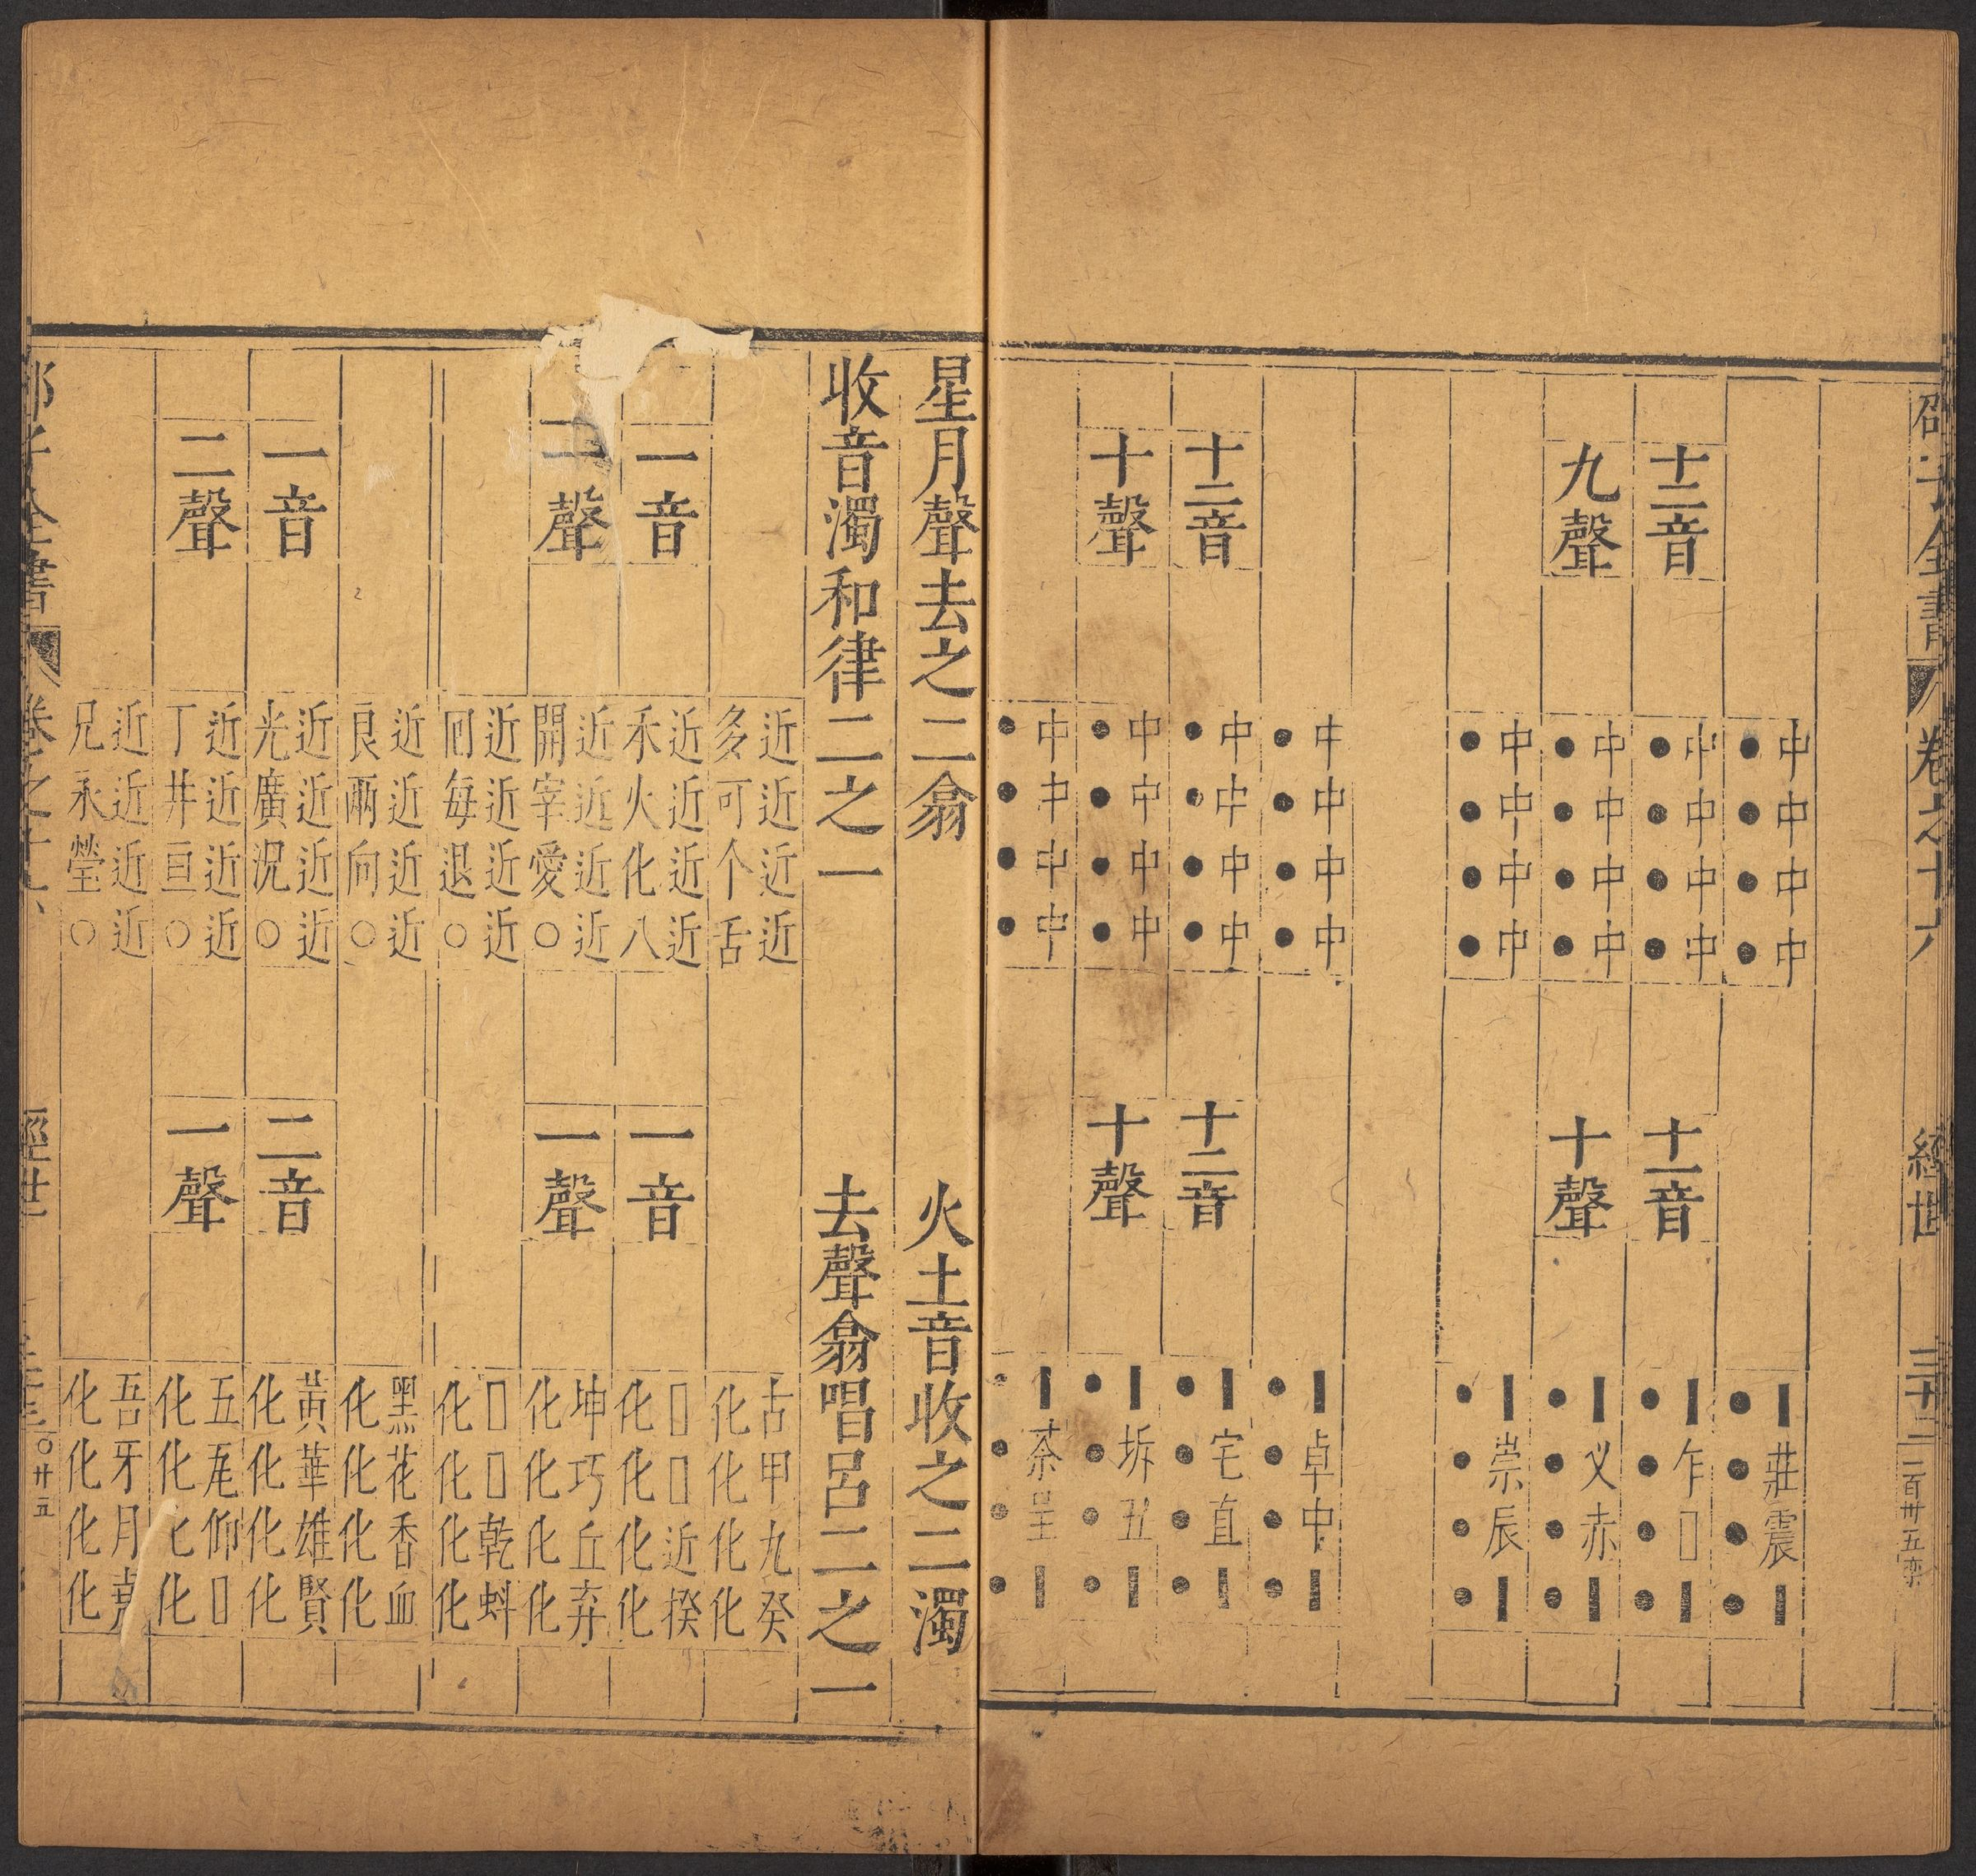 邵子全書 卷之十六 經世
中中中中
●●●●
十二音
中中中中
●●●●
九聲
中中中中
●●●●
中中中中
●●●●
▌莊震▌
●●●●
十一音
▌乍□▌
●●●●
十聲
▌叉赤▌
●●●●
▌崇辰▌
●●●●
中中中中
●●●●
十二音
中中中中
●●●●
十聲
中中中中
●●●●
中中中中
●●●●
▌卓中▌
●●●●
十二音
▌宅直▌
●●●●
十聲
▌坼丑▌
●●●●
▌茶呈▌
●●●●
星月聲去之二翕
收音濁和律二之一
火土音收之二濁
去聲翕唱呂二之一
近近近近
多可个舌
一音
近近近近
禾火化八
二聲
近近近近
開宰愛○
近近近近
回每退○
古甲九癸
化化化化
一音
□□近揆
化化化化
一聲
坤巧丘弃
化化化化
□□乾蚪
化化化化
近近近近
良兩向○
一音
近近近近
光廣況○
二聲
近近近近
丁井亘○
近近近近
兄永瑩○
黑花香血
化化化化
二音
黃華雄賢
化化化化
一聲
五瓦仰□
化化化化
吾牙月堯
化化化化
經世